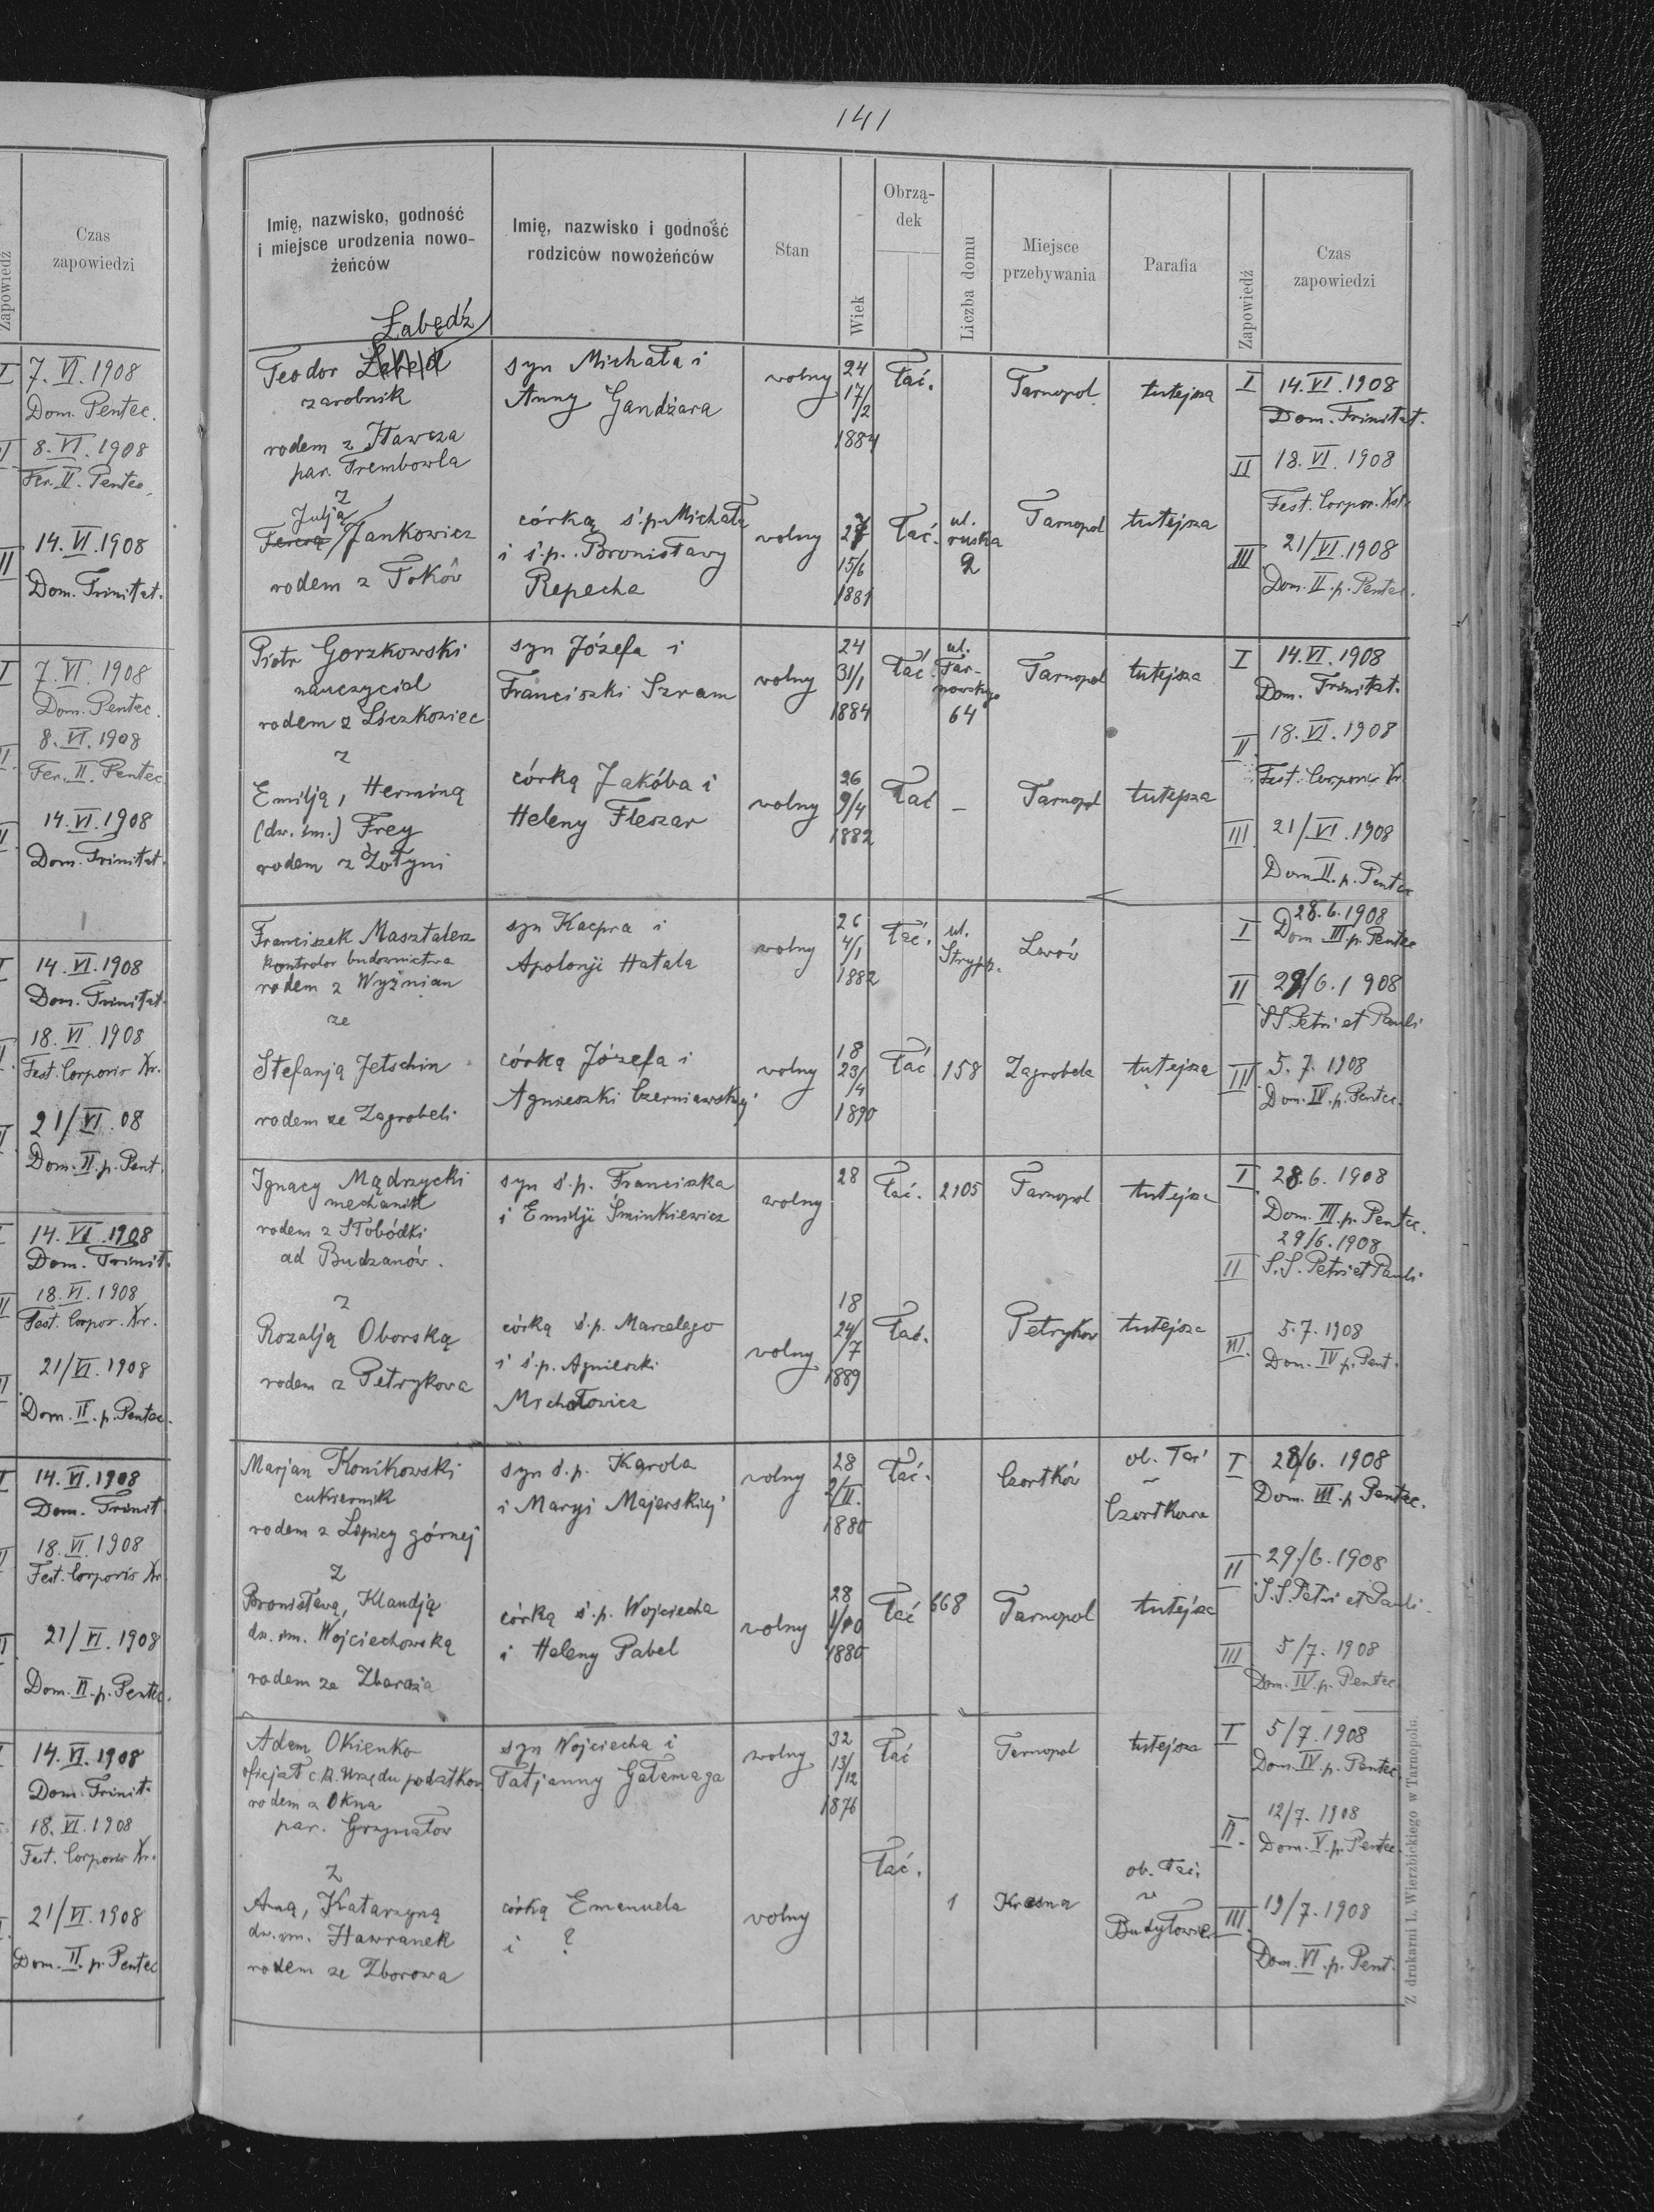 141
Zapowiedź
Czas
zapowiedzi
I 7. VI. 1908
Dom. Pentec.
II 8. VI. 1908
Fer. II. Pentec.
14. VI. 1908
Dom. Trinitat.
I 7. VI. 1908
Dom. Pentec.
8. VI. 1908
Fer. II. Pentec.
14. VI. 1908
Dom. Trinitat.
14. VI. 1908
Dom. Trinitat.
18. VI. 1908
Fest. Corporis Xr.
21/VI. 08
Dom. II. p. Pent.
14. VI. 1908
Dom. Trinit.
18. VI. 1908
Fest. Corpor. Xr.
21/VI. 1908
Dom. II. p. Pentec.
14. VI. 1908
Dom. Trinit
18. VI. 1908
Fest. Corporis Xr.
21/VI. 1908
Dom. II. p. Pentec.
14. VI. 1908
Dom. Trinit.
18. VI. 1908
Fest. Corporis Xr.
21/VI. 1908
Dom. II. p. Pentec
Imię, nazwisko, godność
i miejsce urodzenia nowo-
żeńców
Imię, nazwisko i godność
rodziców nowożeńców
Stan
Wiek
Obrzą-
dek
Liczba domu
Miejsce
przebywania
Parafia
Zapowiedź
Czas
zapowiedzi
Łabędź
Teodor
zarobnik
rodem z Iławcza
par. Trembowla
syn Michała i
Anny Gandżara
wolny
24
17/2
1884
łać.
Tarnopol
tutejsza
I 14. VI. 1908
Dom. Trinitat.
II 18. VI. 1908
Fest. Corpor. Xst.
z
Julją
Jankowicz
rodem z Toków
córką ś.p. Michała
i ś.p. Bronisławy
Repecha
wolny
27
15/6
1881
łać.
ul.
ruska
2
Tarnopol
tutejsza
III 21/VI. 1908
Dom. II. p. Pentec.
Piotr Gorzkowski
nauczyciel
rodem z Liczkowiec
syn Józefa i
Franciszki Szram
wolny
24
31/1
1884
łać.
ul.
Tar-
nowskiego
64
Tarnopol
tutejsza
I 14. VI. 1908
Dom. Trinitat.
II 18. VI. 1908
Fest. Corporis Xr.
z
Emilją, Herminą
(dw. im.) Frey
rodem z Żołyni
córką Jakóba i
Heleny Fleszar
wolny
26
9/4
1882
łać
–
Tarnopol
tutejsza
III 21/VI. 1908
Dom. II. p. Pentec
Franciszek Masztalerz
kontrolor budownictwa
rodem z Wyżnian
syn Kacpra i
Apolonji Hatala
wolny
26
4/1
1882
łać.
ul.
Lwów
I 28. 6. 1908
Dom III. p. Pentec
II 29/6. 1908
SS. Petri et Pauli
ze
Stefanją Jetschin
rodem ze Zagrobeli
córką Józefa i
Agnieszki Czerniawskiej
wolny
18
23/4
1890
łać.
158
Zagrobela
tutejsza
III 5. 7. 1908
Dom. IV. p. Pentec.
Ignacy Mądrzycki
mechanik
rodem z Słobódki
ad Budzanów.
syn ś.p. Franciszka
i Emilji Śminkiewicz
wolny
28
łać.
2105
Tarnopol
tutejsza
I 28. 6. 1908
Dom. III. p. Pentec.
29/6. 1908
II S.S. Petri et Pauli
z
Rozalją Oborską
rodem z Petrykowa
córką ś.p. Marcelego
i ś.p. Agnieszki
Michałowicz
wolny
18
24/7
1889
łać.
Petryków
tutejsza
III. 5. 7. 1908
Dom. IV p. Pent.
Marjan Konikowski
cukiernik
rodem z Lipicy górnej
syn ś.p. Karola
i Maryi Majerskiej
wolny
28
2/II.
1880
łać.
Czortków
ob. łać
w
Czortkowie
I 28/6. 1908
Dom. III. p. Pentec.
II 29/6. 1908
S.S. Petri et Pauli
z
Bronisławą, Klaudją
dw. im. Wojciechowską
rodem ze Zbaraża
córką ś.p. Wojciecha
i Heleny Pabel
wolny
28
1/10
1880
łać
668
Tarnopol
tutejsza
III 5/7. 1908
Dom. IV. p. Pentec.
Adam Okienko
oficjał c.k. Urzędu podatkow
rodem z Okna
par. Grzymałów
syn Wojciecha i
Tatjanny Gałamaga
wolny
32
13/12
1876
łać
Tarnopol
tutejsza
I 5/7. 1908
Dom. IV. p. Pentec.
II. 12/7. 1908
Dom. V. p. Pentec.
z
Anną, Katarzyną
dw. im. Hawranek
rodem ze Zborowa
córką Emanuela
i ?
wolny
łać.
1
Krasna
ob. łać.
w
Budyłowie
III 19/7. 1908
Dom. VI. p. Pent.
Z drukarni L. Wierzbickiego w Tarnopolu.